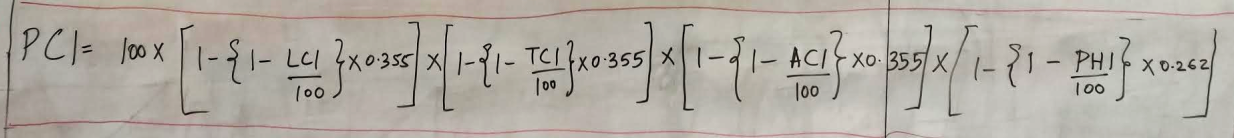 PCI = 100 × [1-{1 - LCI/100}×0.355] × [1-{1 - TCI/100}×0.355] × [1-{1 - ACI/100}×0.355] × [1-{1 - PHI/100}×0.262]